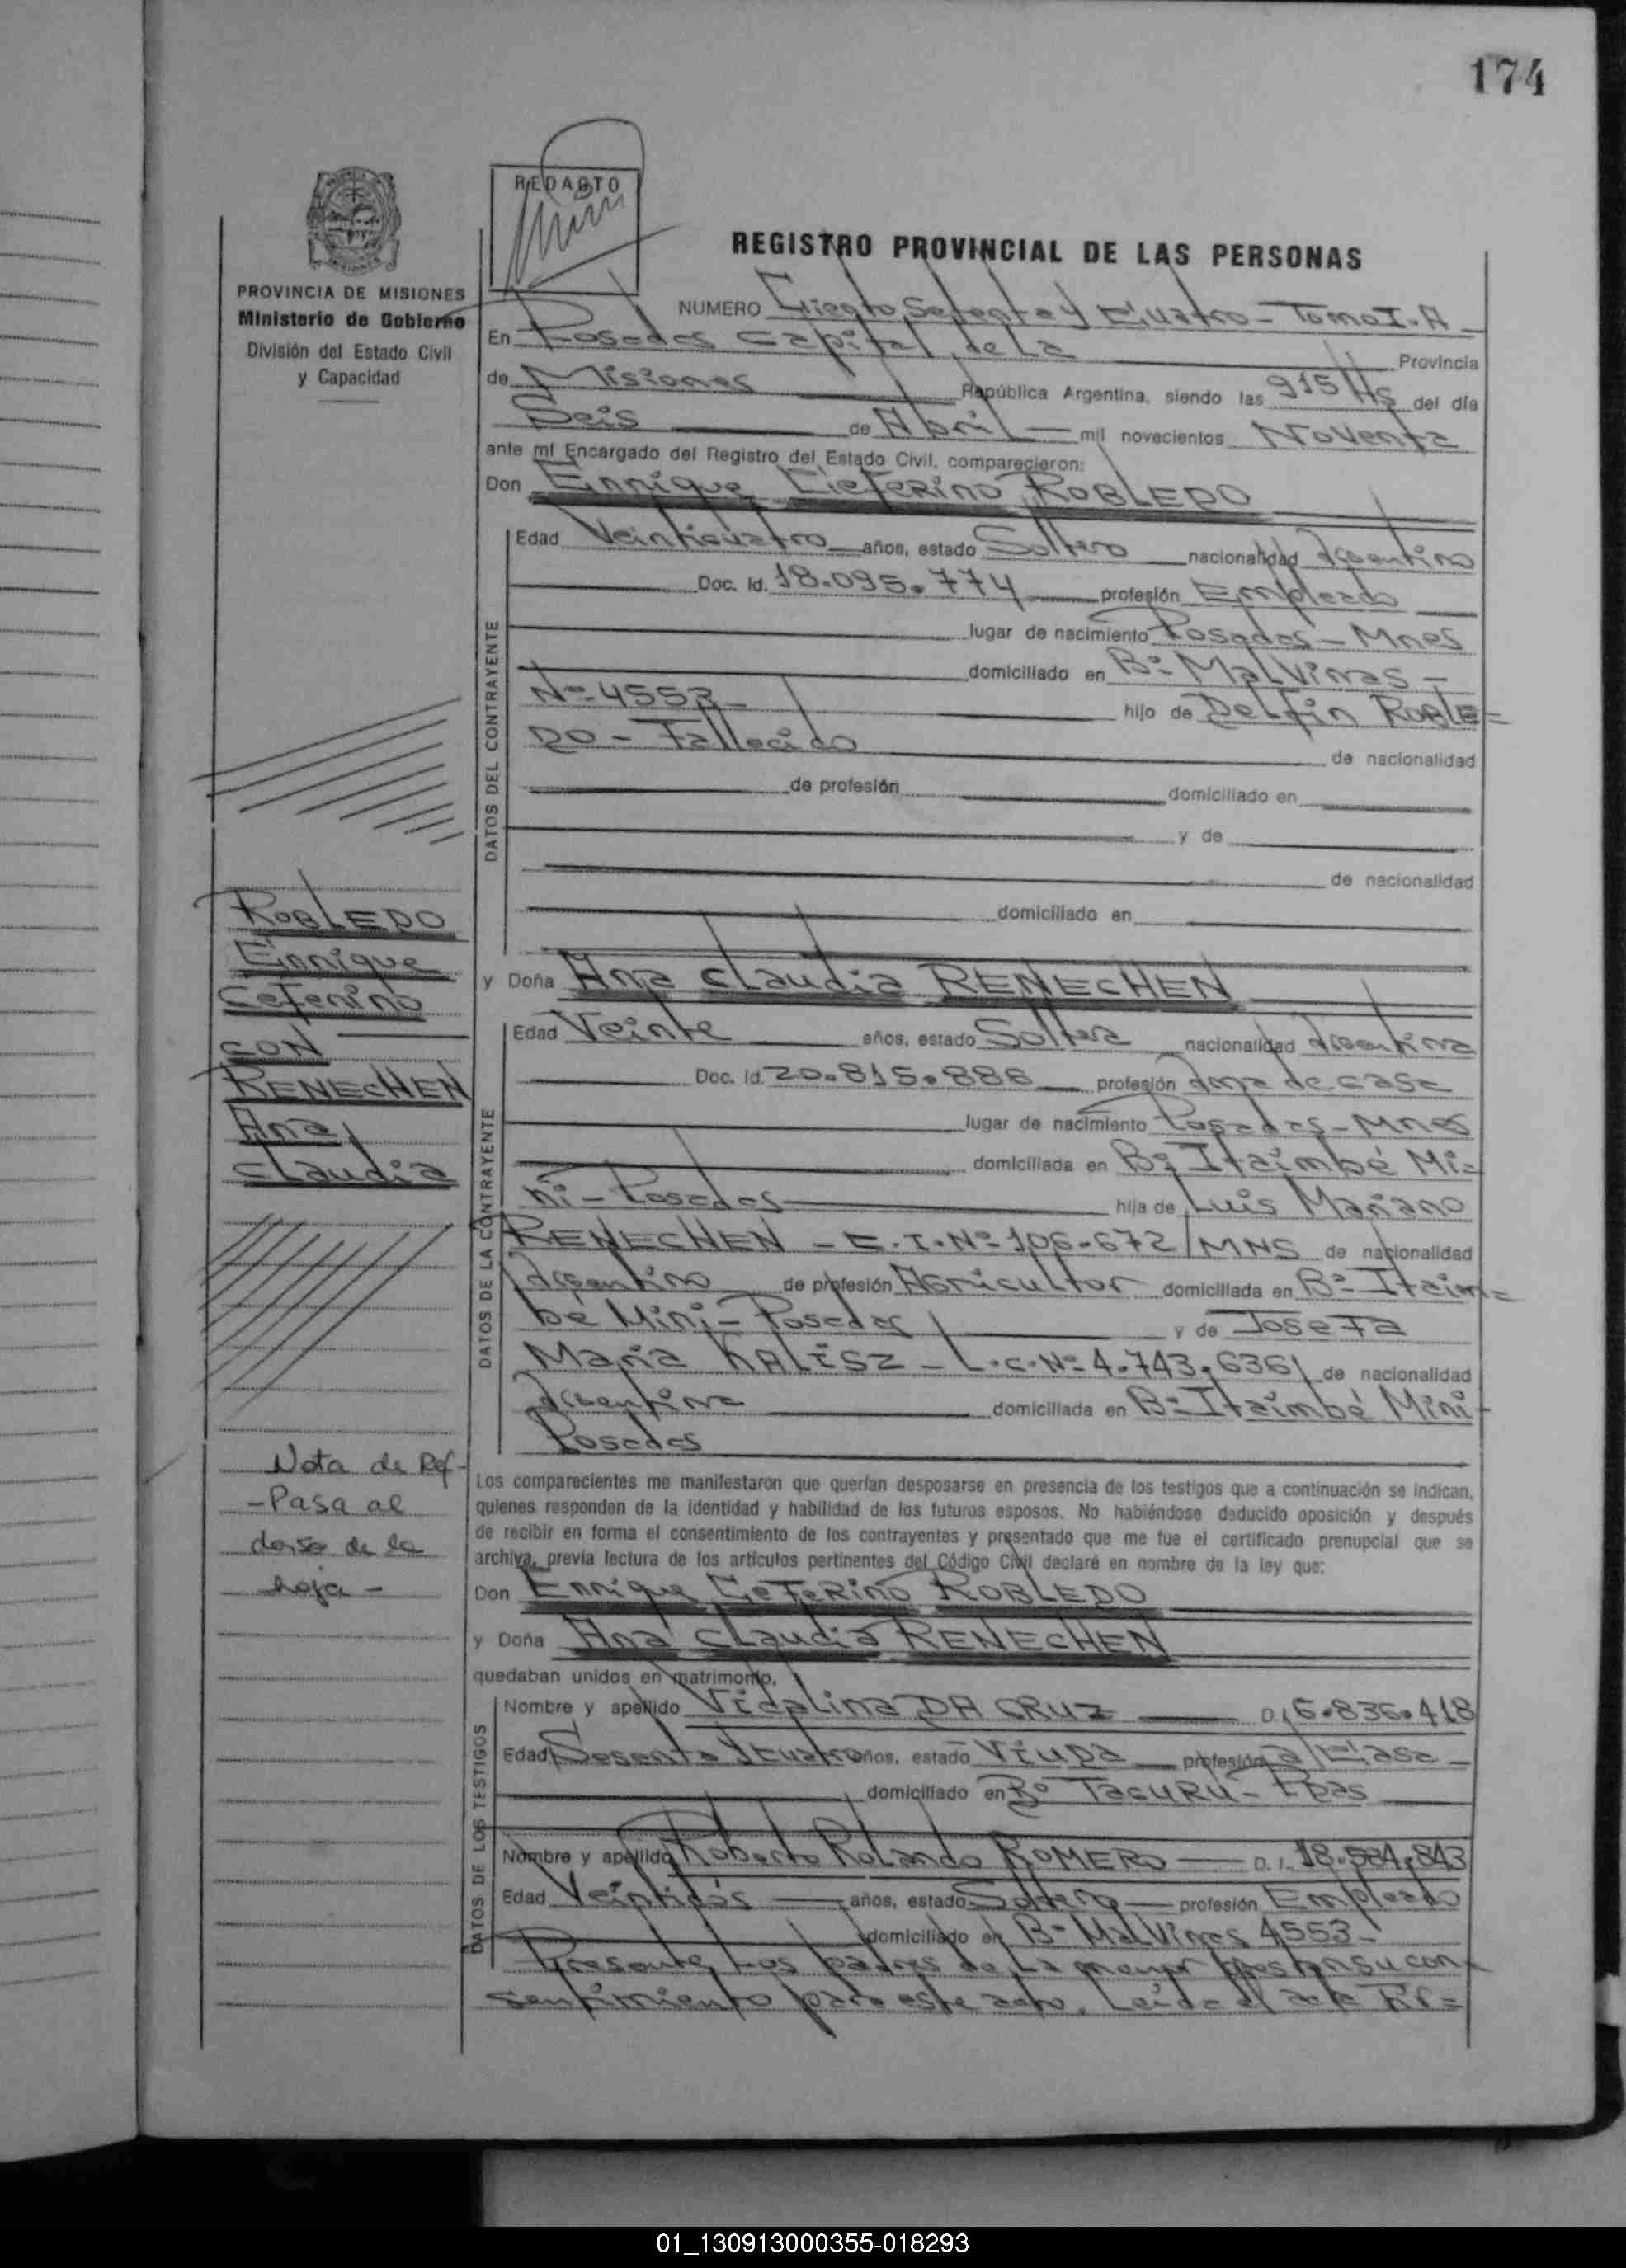 174
REDACTO
REGISTRO PROVINCIAL DE LAS PERSONAS
PROVINCIA DE MISIONES
Ministerio de Gobierno
División del Estado Civil
y Capacidad
NUMERO Ciento Setenta y Cuatro - Tomo I. A
En Posadas Capital de La Provincia
de Misiones República Argentina, siendo las 915 Hs del día
Seis de Abril mil novecientos Noventa
ante mí Encargado del Registro del Estado Civil, comparecieron:
Don Enrique Ceferino ROBLEDO
DATOS DEL CONTRAYENTE
Edad Veinticuatro años, estado Soltero nacionalidad Argentino
Doc. Id. 18.095.774 profesión Empleado
lugar de nacimiento Posadas - Mnes
domiciliado en Bº Malvinas -
Nº 4553 - hijo de Delfin ROBLE=
DO - Fallecido de nacionalidad
de profesión domiciliado en
y de
de nacionalidad
domiciliado en
ROBLEDO
Enrique
Ceferino
CON
RENECHEN
Ana
Claudia
y Doña Ana Claudia RENECHEN
DATOS DE LA CONTRAYENTE
Edad Veinte años, estado Soltera nacionalidad Argentina
Doc. Id. 20.815.886 profesión ama de casa
lugar de nacimiento Posadas - Mnes
domiciliada en Bº Itaimbé Mi=
ni - Posadas hija de Luis Mariano
RENECHEN - C.I.Nº 106.672/MNS de nacionalidad
Argentino de profesión Agricultor domiciliada en Bº Itaim=
bé Mini - Posadas y de Josefa
Maria KALISZ - L.C.Nº 4.743.636 de nacionalidad
Argentina domiciliada en Bº Itaimbé Mini -
Posadas
Nota de Ref -
- Pasa al
dorso de la
hoja -
Los comparecientes me manifestaron que querían desposarse en presencia de los testigos que a continuación se indican,
quienes responden de la identidad y habilidad de los futuros esposos. No habiéndose deducido oposición y después
de recibir en forma el consentimiento de los contrayentes y presentado que me fue el certificado prenupcial que se
archiva, previa lectura de los artículos pertinentes del Código Civil declaré en nombre de la ley que:
Don Enrique Ceferino ROBLEDO
y Doña Ana Claudia RENECHEN
quedaban unidos en matrimonio.
DATOS DE LOS TESTIGOS
Nombre y apellido Vidalina DA CRUZ D.I. 6.836.418
Edad Sesenta y Cuatro años, estado Viuda profesión a/Casa -
domiciliado en Bº Tacurú - Ppas
Nombre y apellido Roberto Rolando ROMERO D.I. 18.584.843
Edad Veintidós años, estado Soltero profesión Empleado
domiciliado en Bº Malvinas 4553 -
Presente Los padres de La menor prestan su con=
sentimiento para este acto. Leída el acta fir=
01_130913000355-018293